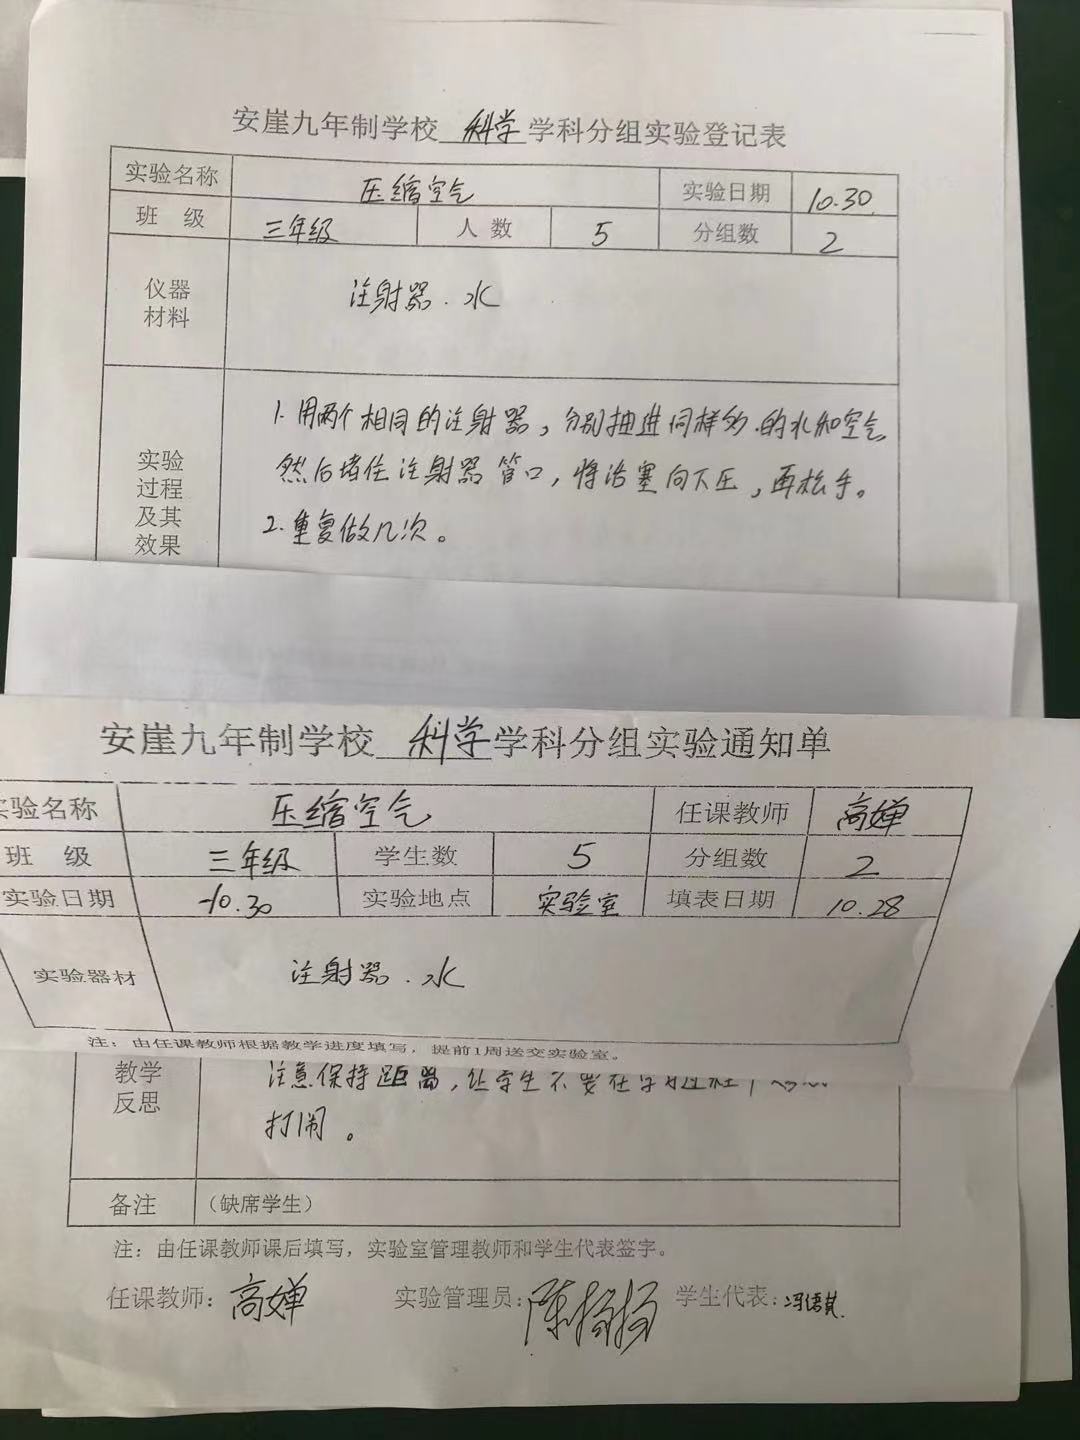 安崖九年制学校 科学 学科分组实验登记表
实验名称 压缩空气 实验日期 10.30.
班 级 三年级 人数 5 分组数 2
仪器材料 注射器.水
实验过程及其效果
1.用两个相同的注射器,分别抽进同样多的水和空气
然后堵住注射器管口,将活塞向下压,再松手。
2.重复做几次。
安崖九年制学校 科学 学科分组实验通知单
实验名称 压缩空气 任课教师 高婵
班 级 三年级 学生数 5 分组数 2
实验日期 10.30 实验地点 实验室 填表日期 10.28
实验器材 注射器.水
注:由任课教师根据教学进度填写,提前1周送交实验室。
教学反思
注意保持距离,让学生不要在
打闹。
备注 (缺席学生)
注:由任课教师课后填写,实验室管理教师和学生代表签字。
任课教师:高婵 实验管理员:陈杨杨 学生代表: